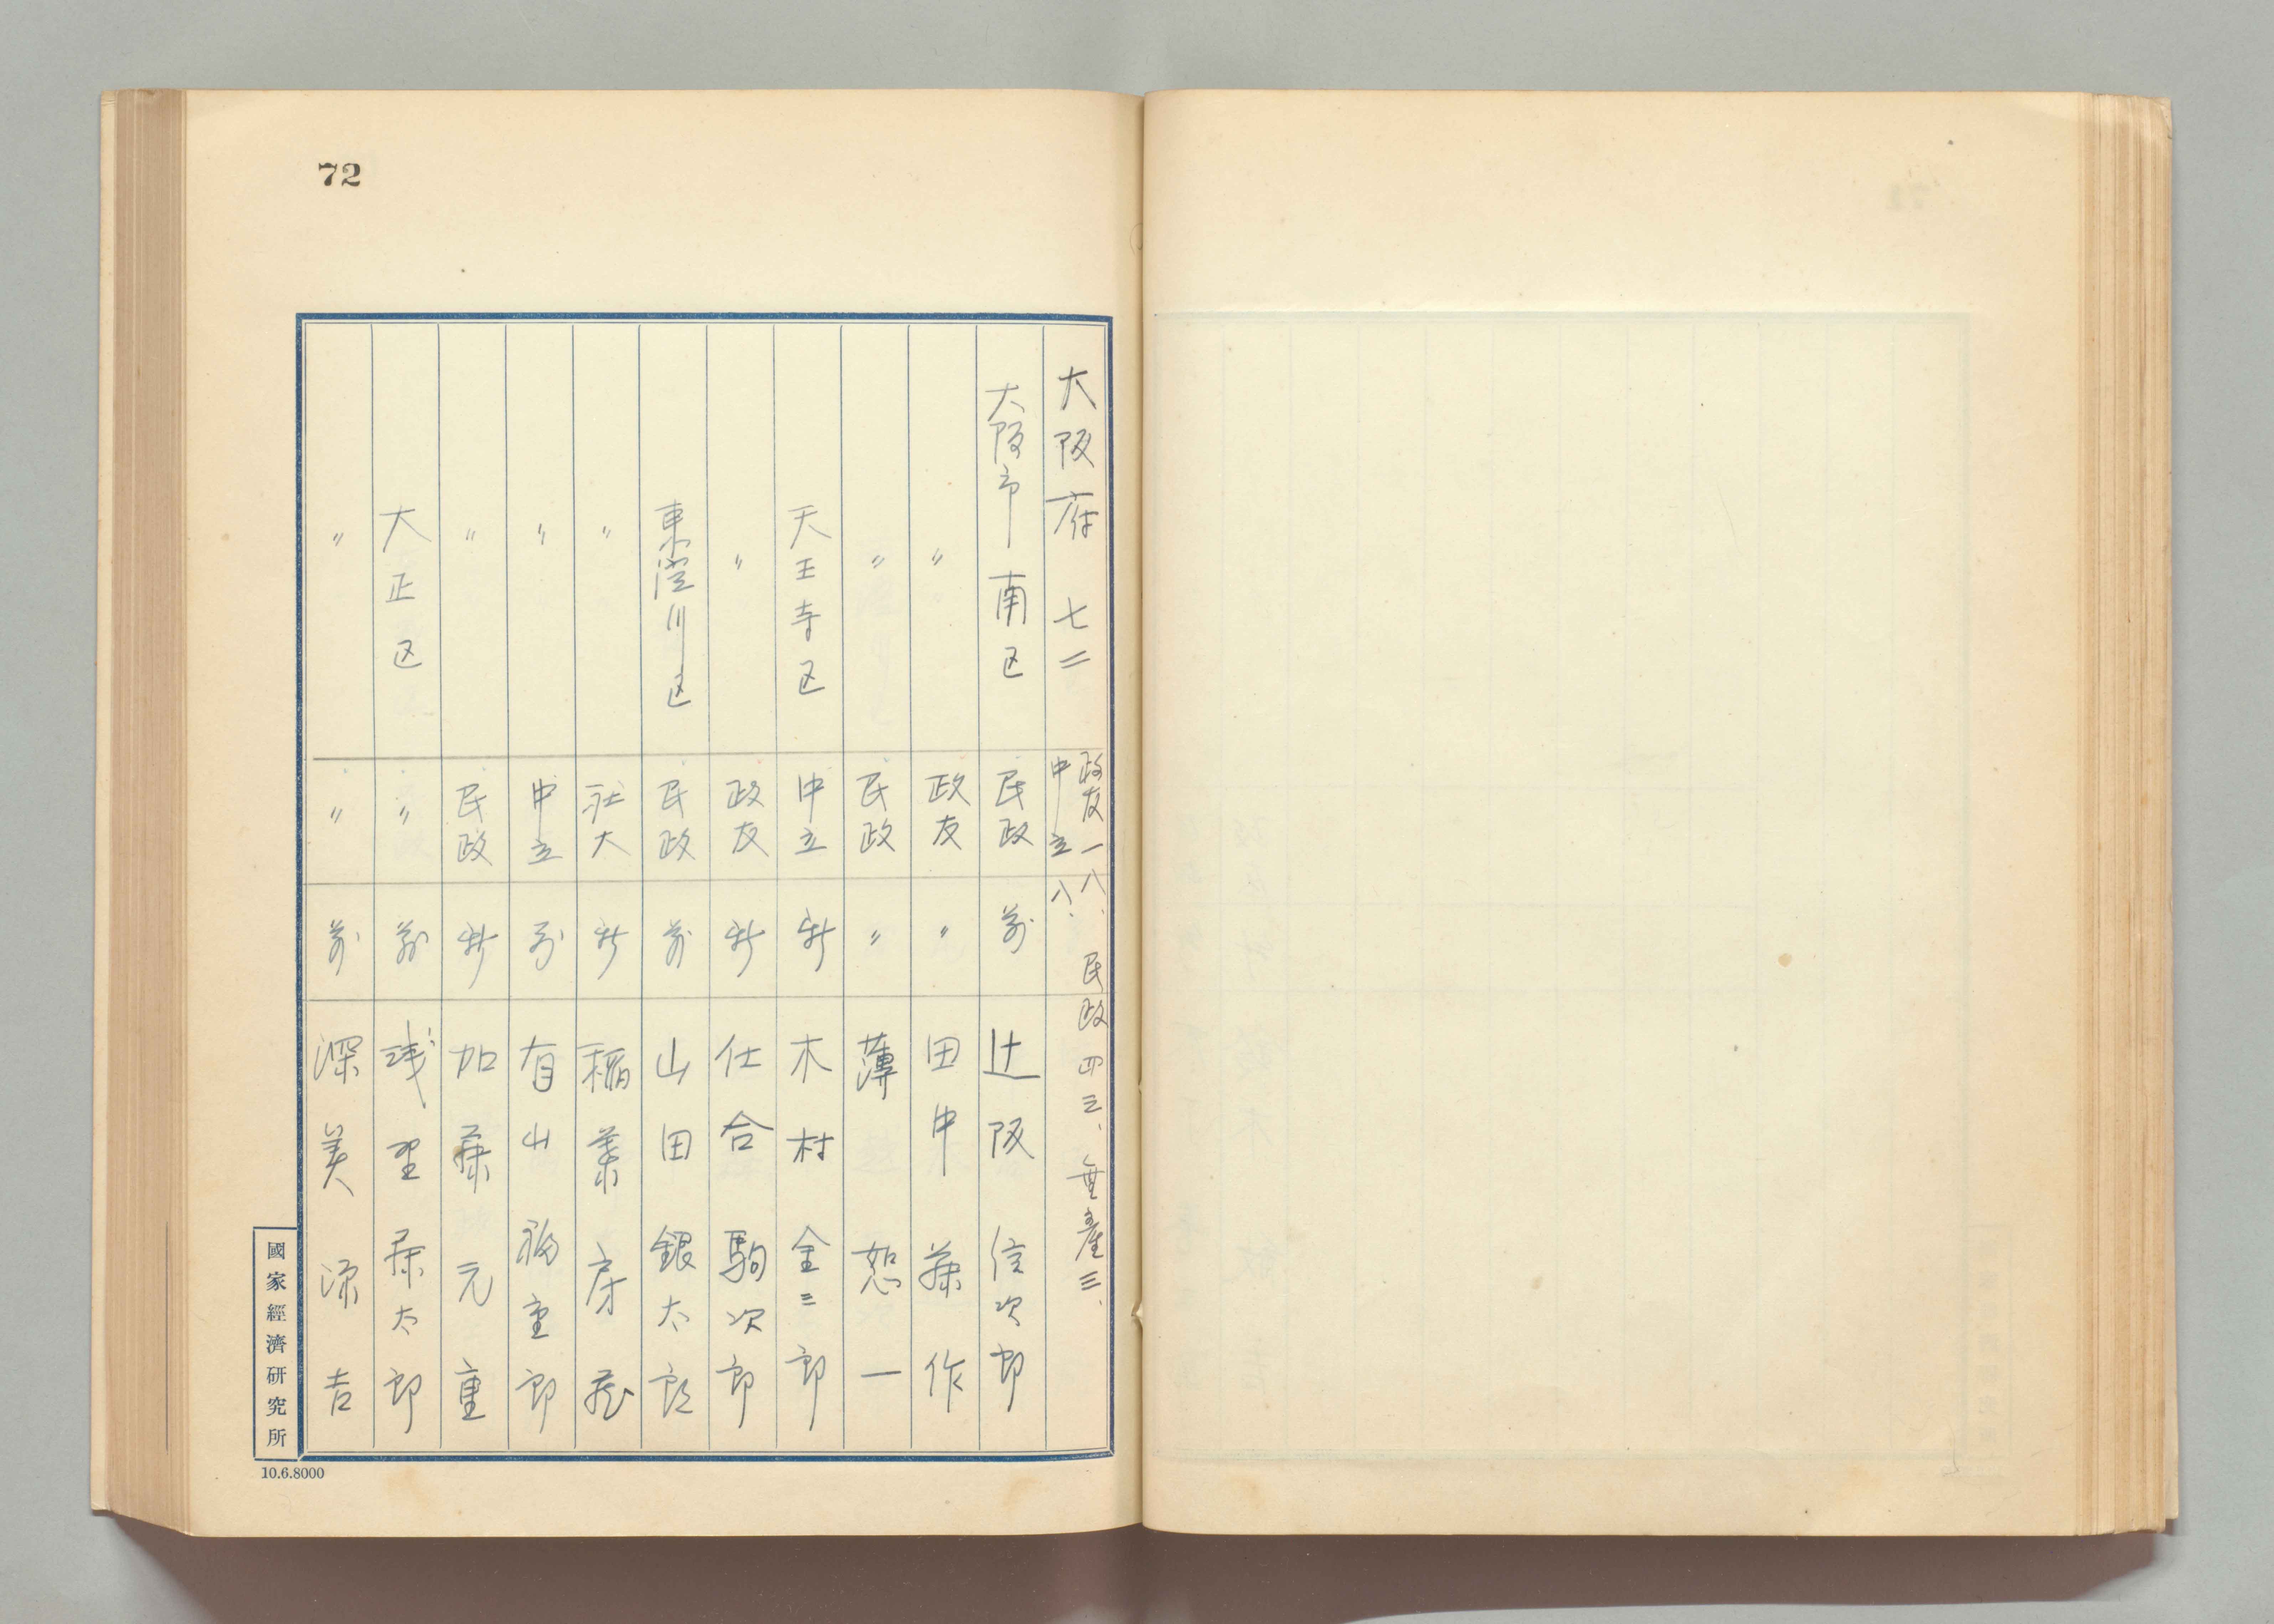 72
大阪府 七二 政友 一八、民政 四三、無産 三、
中立 八、
大阪市 南区 民政 前 辻阪信次郎
〃 政友 〃 田中藤作
〃 民政 〃 薄恕一
天王寺区 中立 新 木村金三郎
〃 政友 新 仕合駒次郎
東淀川区 民政 前 山田銀太郎
〃 社大 新 稲葉房蔵
〃 中立 前 有山福重郎
〃 民政 新 加藤元重
大正区 〃 前 浅里藤太郎
〃 〃 前 深美源吉
國家經濟研究所
10.6.8000